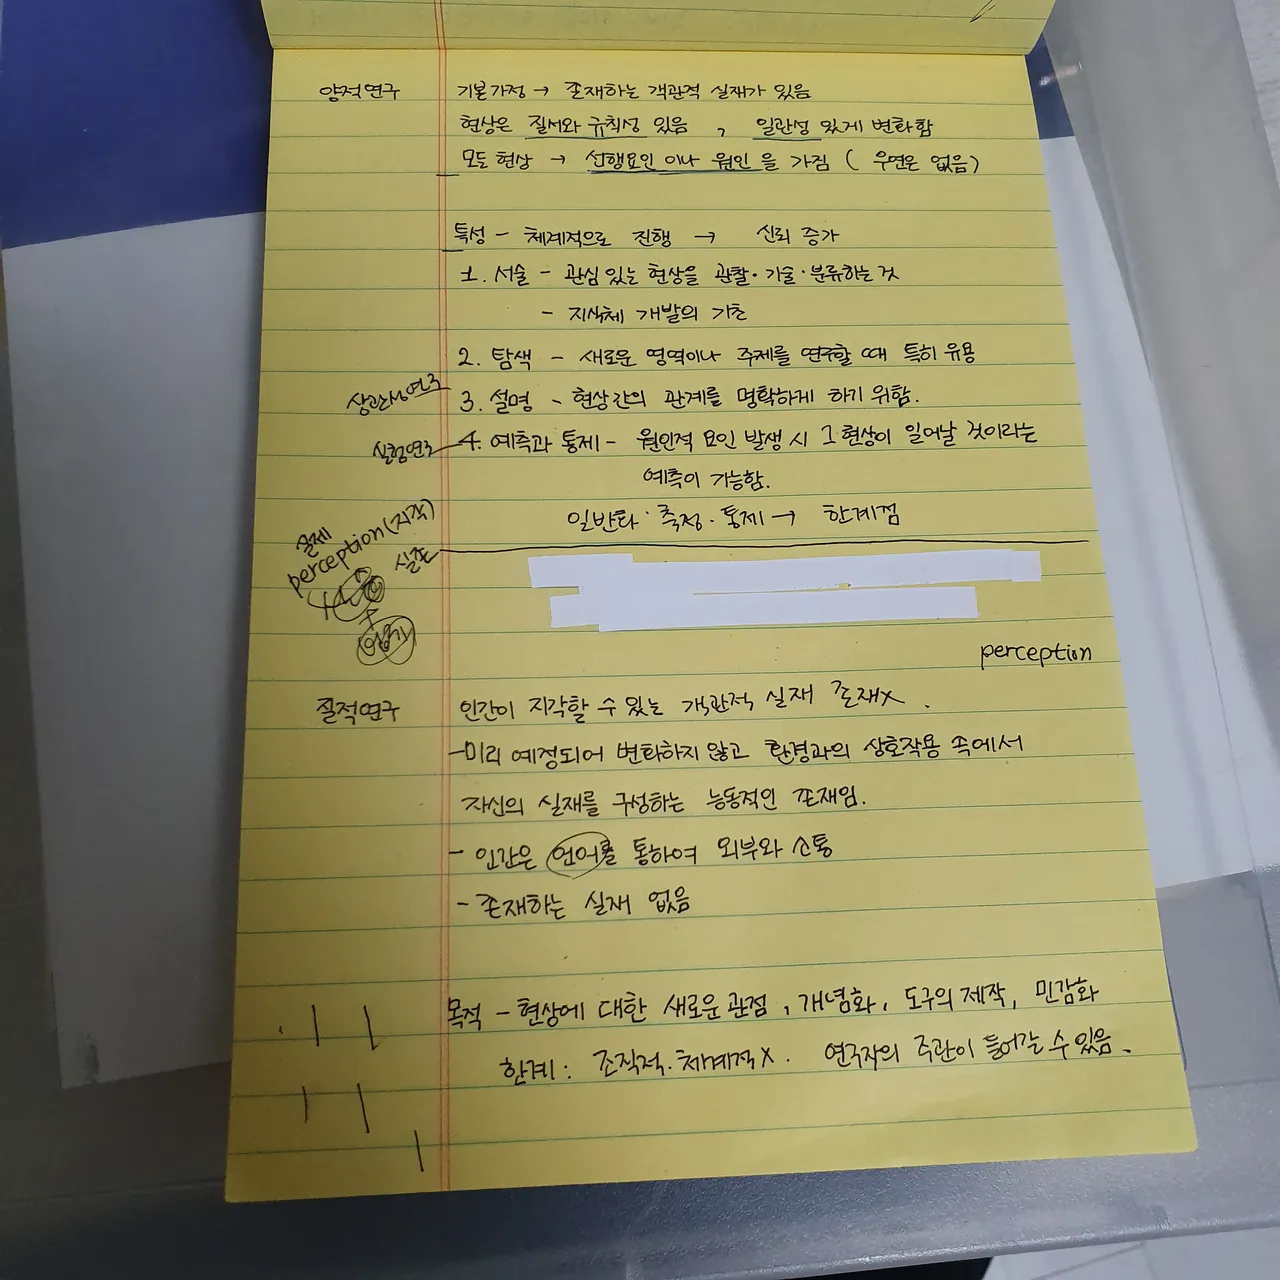 양적연구 기본가정 → 존재하는 객관적 실재가 있음
현상은 질서와 규칙성 있음 , 일관성 있게 변화함
모든 현상 → 선행요인이나 원인을 가짐 ( 우연은 없음)
특성 - 체계적으로 진행 → 신뢰 증가
1. 서술 - 관심있는 현상을 관찰·기술·분류하는 것
- 지식체 개발의 기초
2. 탐색 - 새로운 영역이나 주제를 연구할 때 특히 유용
상관성연구 3. 설명 - 현상간의 관계를 명확하게 하기 위함.
실험연구 4. 예측과 통제 - 원인적 요인 발생 시 그 현상이 일어날 것이라는
예측이 가능함.
일반화·측정·통제 → 한계점
실제
perception(지각)
실존
perception
질적연구 인간이 지각할 수 있는 객관적 실재 존재x .
-미리 예정되어 변화하지 않고 환경과의 상호작용 속에서
자신의 실재를 구성하는 능동적인 존재임.
- 인간은 언어를 통하여 외부와 소통
- 존재하는 실재 없음
목적 - 현상에 대한 새로운 관점 , 개념화, 도구의 제작, 민감화
한계 : 조직적. 체계적 X . 연구자의 주관이 들어갈 수 있음.